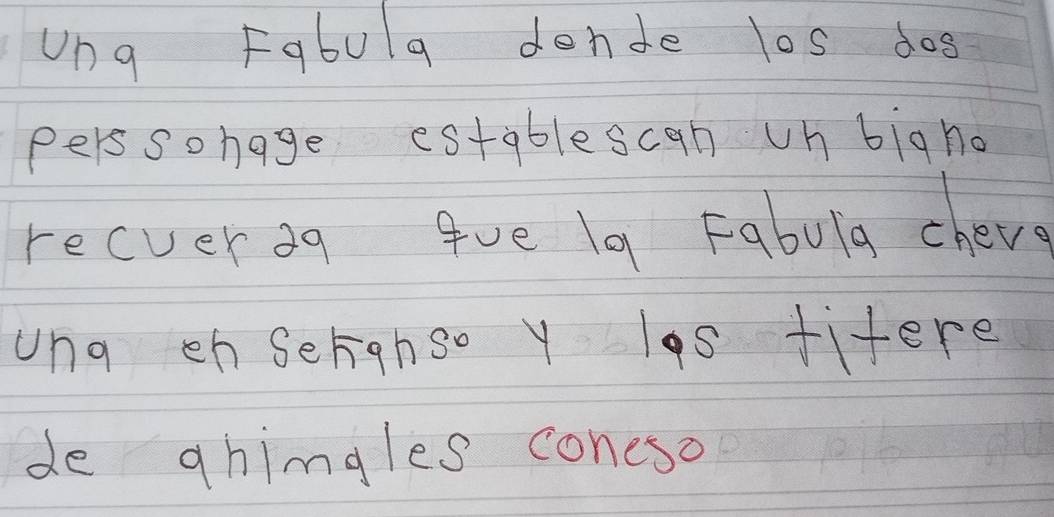 una Fabula donde los dos
perssonage establescan un biano
recuerda que la Fabula cheva
una ensenanso y los titere
de animales coneso